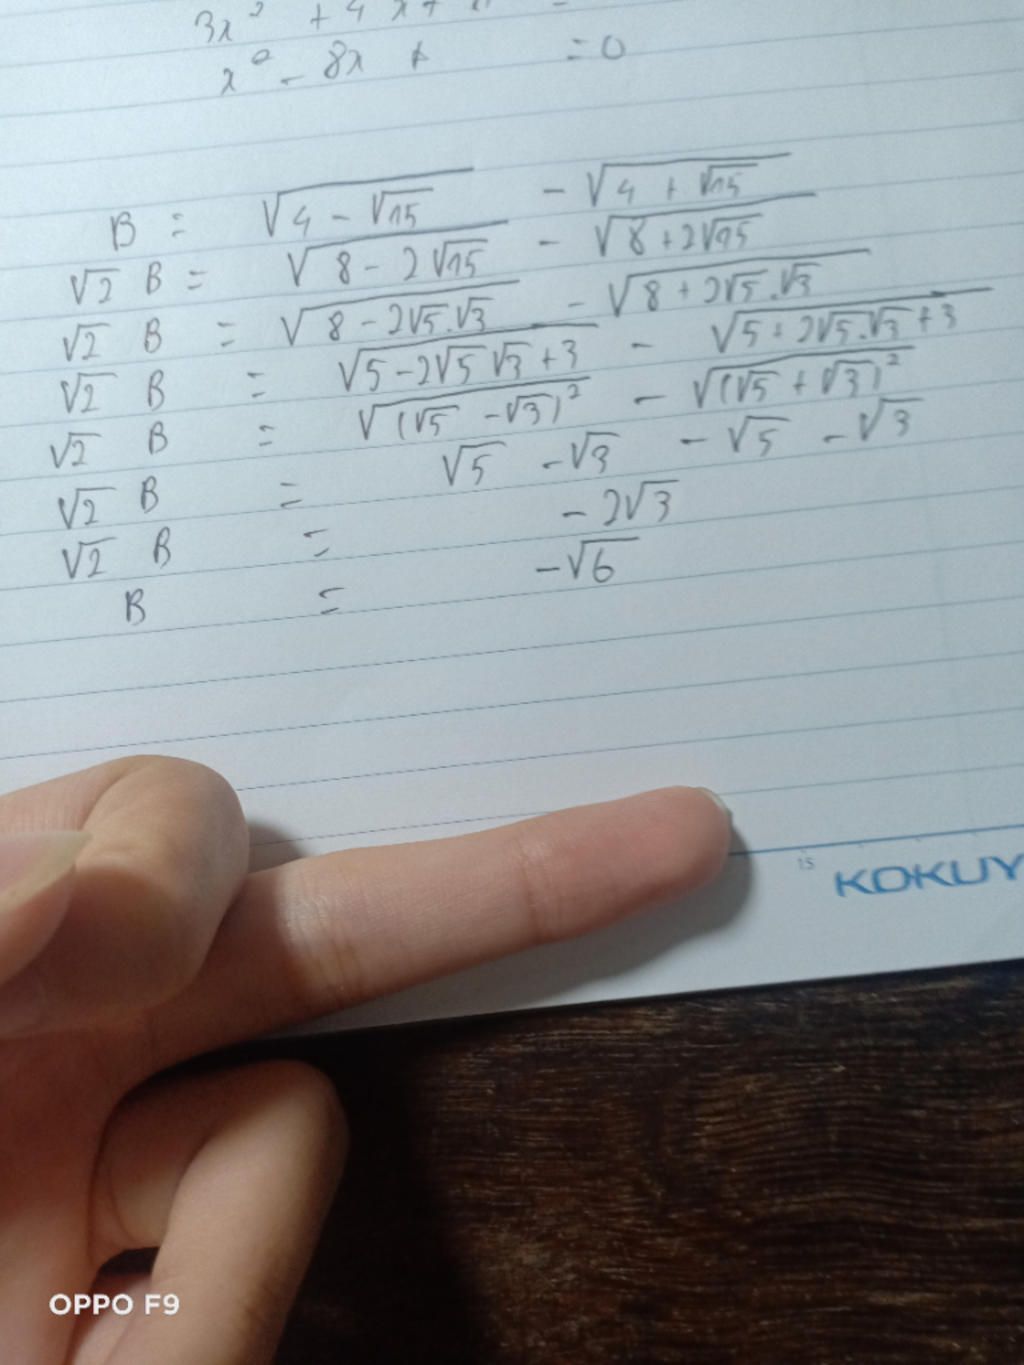 3x² + 4x +
x² - 8x + = 0
B = √(4 - √15) - √(4 + √15)
√2 B = √(8 - 2√15) - √(8 + 2√15)
√2 B = √(8 - 2√5.√3) - √(8 + 2√5.√3)
√2 B = √(5 - 2√5 √3 + 3) - √(5 + 2√5.√3 + 3)
√2 B = √((√5 - √3)²) - √((√5 + √3)²)
√2 B = √5 - √3 - √5 - √3
√2 B = - 2√3
B = -√6
15
KOKUY
OPPO F9